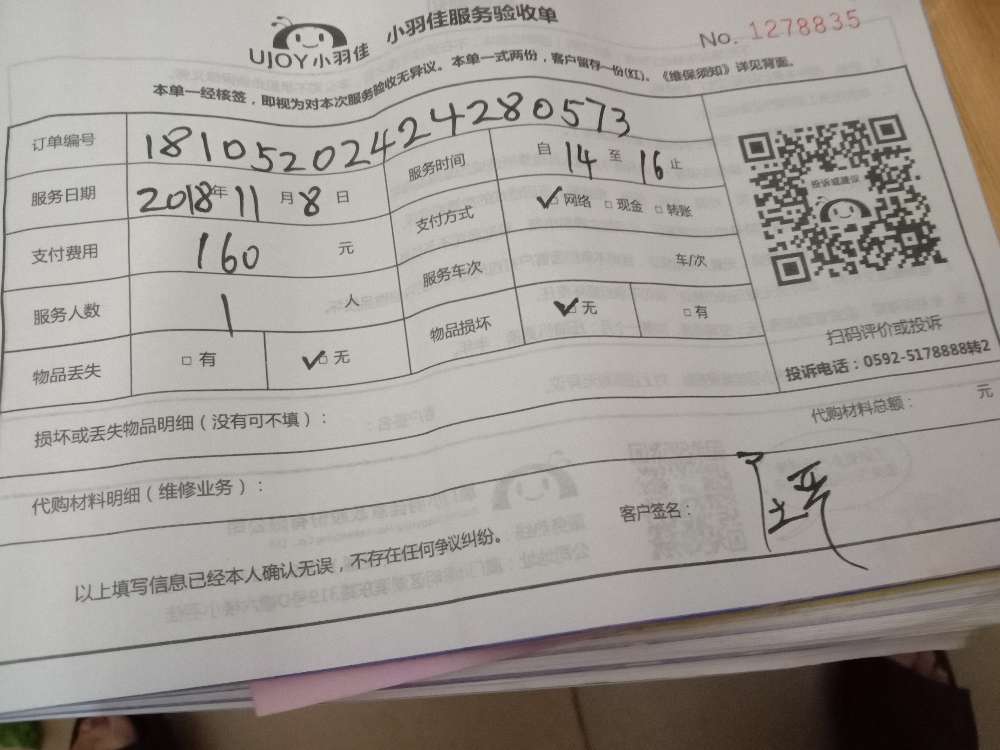 UJOY小羽佳 小羽佳服务验收单 No. 1278835
本单一经核签，即视为对本次服务验收无异议。本单一式两份，客户留存一份(红)。《维保须知》详见背面。
订单编号 18105202424280573
服务日期 2018年11月8日 服务时间 自14至16止
支付费用 160 元 支付方式 ✓□网络 □现金 □转账
服务人数 1 人 服务车次 车/次
物品丢失 □有 ✓□无 物品损坏 ✓□无 □有
投诉或建议
扫码评价或投诉
投诉电话：0592-5178888转2
损坏或丢失物品明细（没有可不填）：
代购材料明细（维修业务）： 代购材料总额： 元
以上填写信息已经本人确认无误，不存在任何争议纠纷。 客户签名：